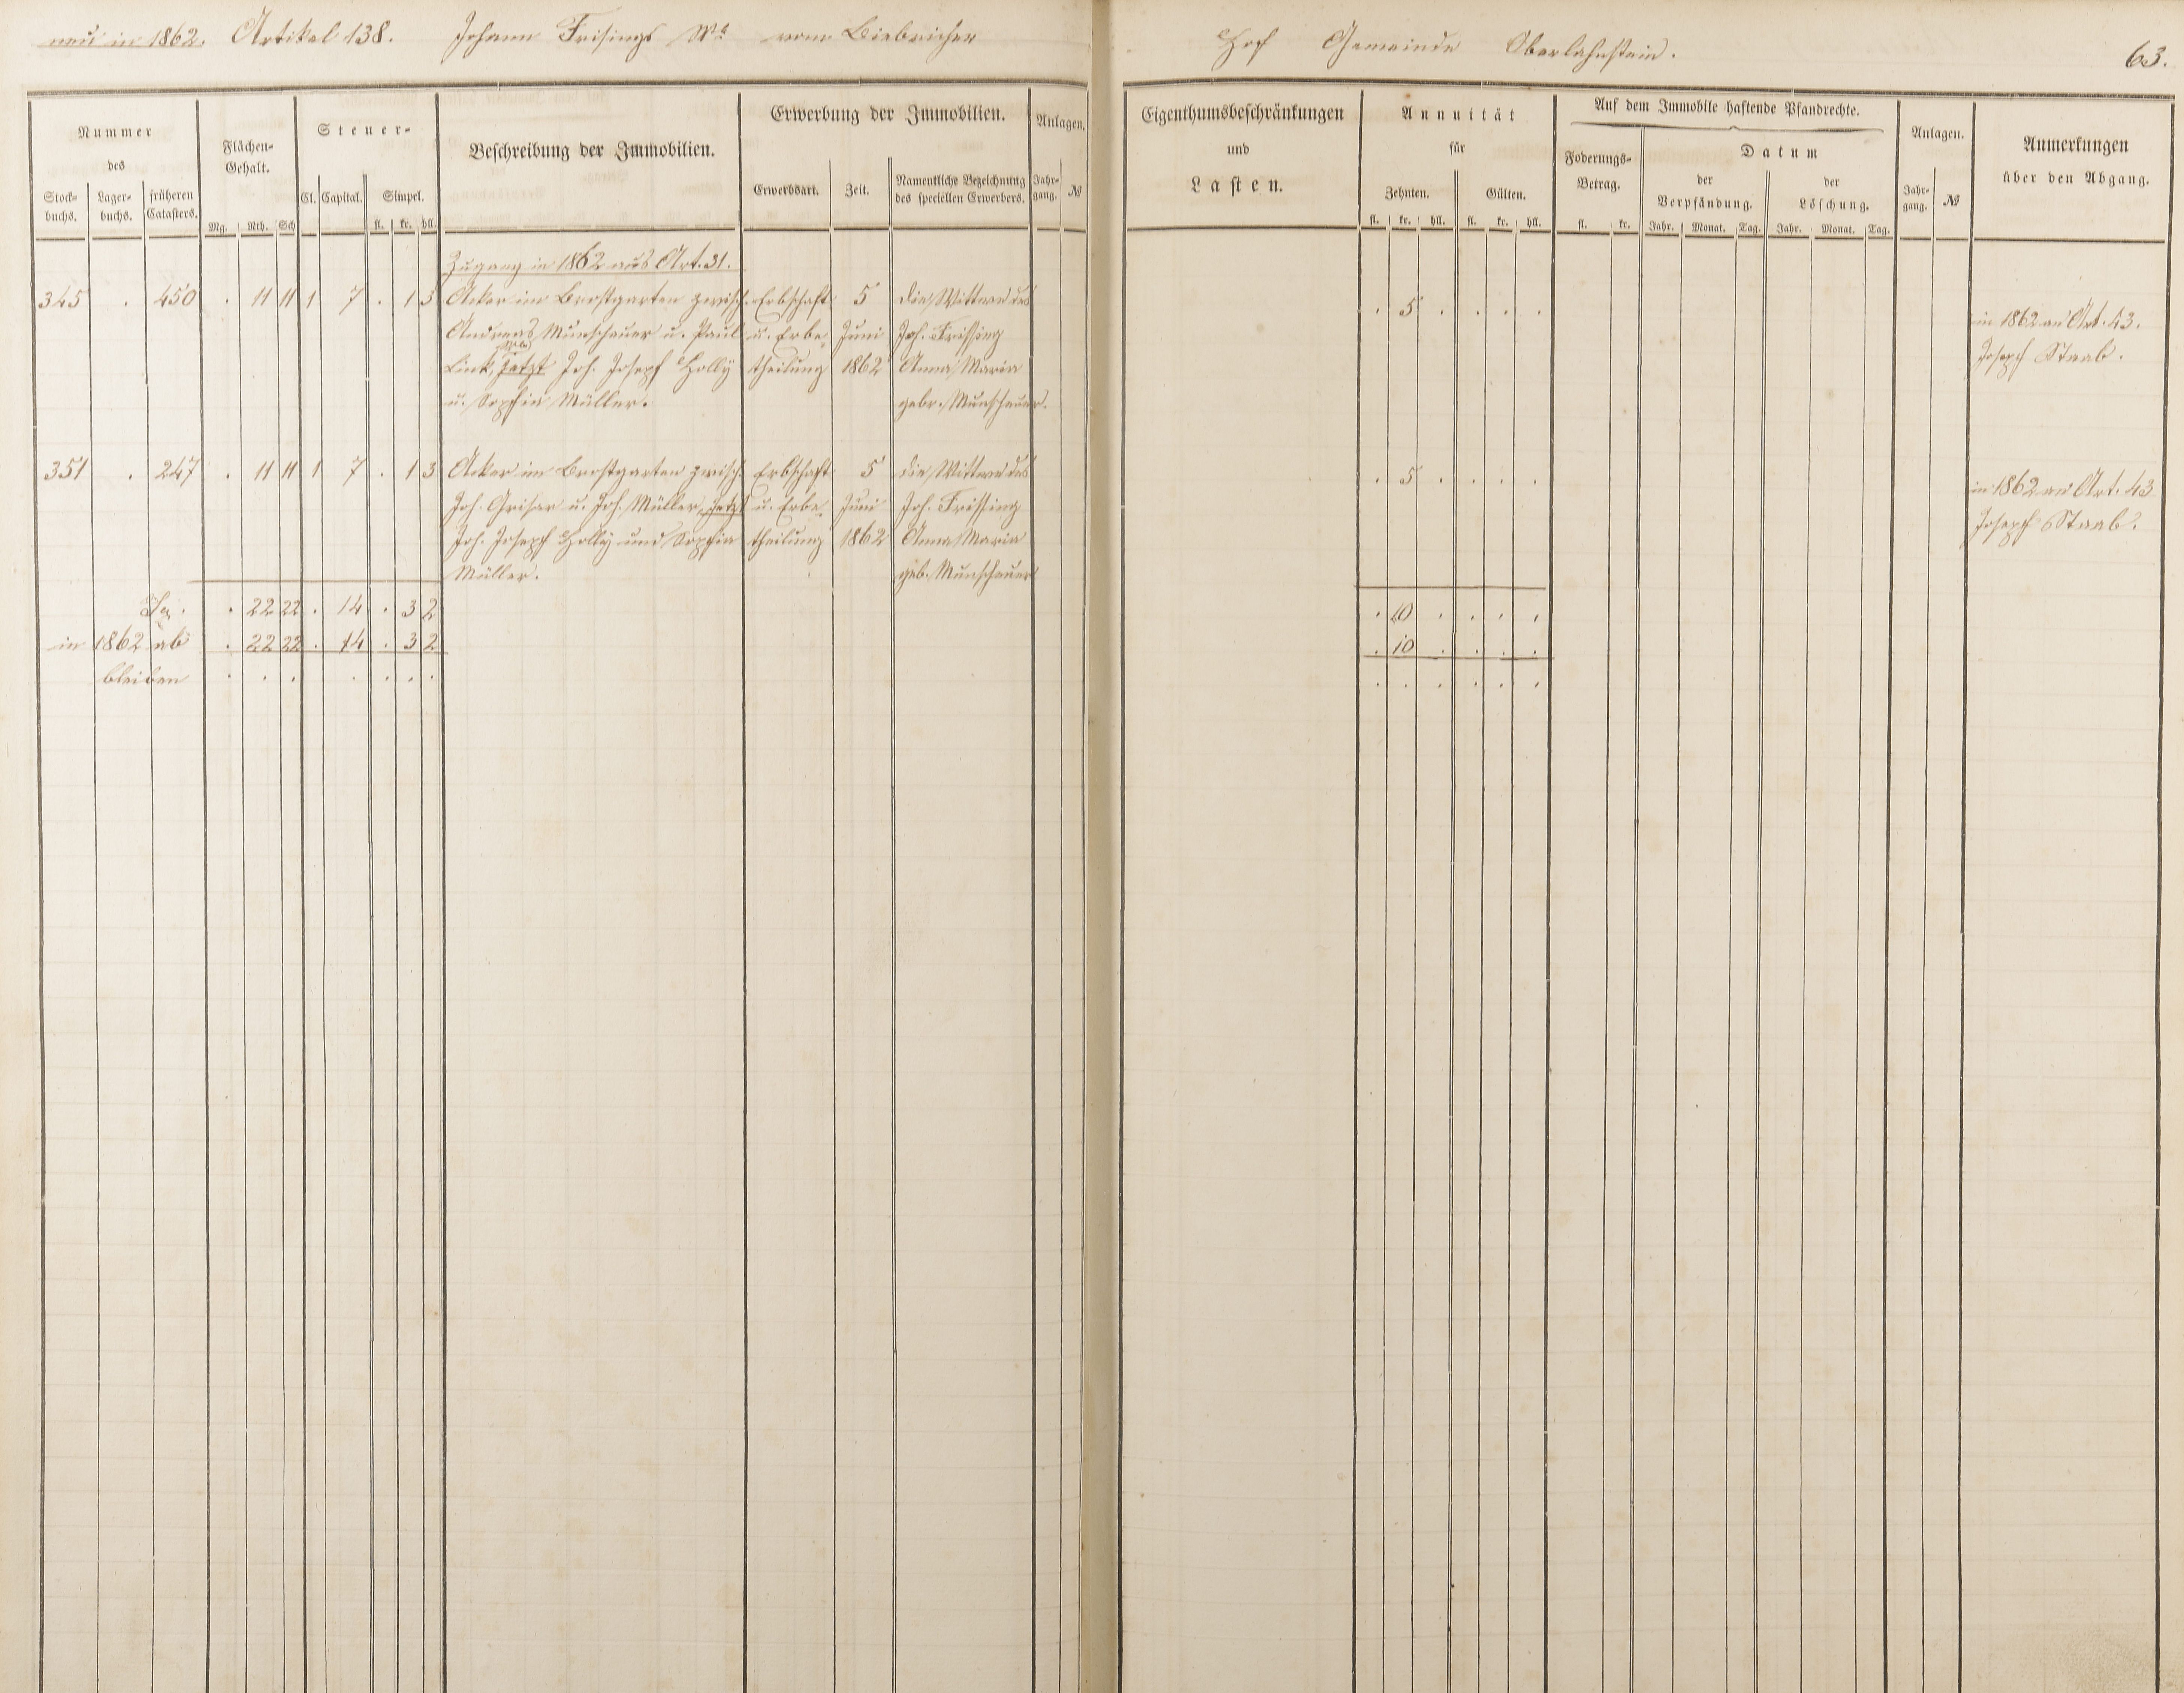 neu in 1862. Artikel 138. Johann Frisings Wb vom Biebricher Hof Gemeinde Oberlahnstein. 63.
Nummer
des
Stock-
buchs.
Lager-
buchs.
früheren
Catasters.
Flächen-
Gehalt.
Mg. Rth. Sch
Steuer-
Cl. Capital. Simpel.
fl. kr. hll.
Beschreibung der Immobilien.
Erwerbung der Immobilien.
Erwerbsart. Zeit.
Namentliche Bezeichnung
des speciellen Erwerbers.
Anlagen.
Jahr-
gang.
№
Eigenthumsbeschränkungen
und
Lasten.
Annuität
für
Zehnten. Gülten.
fl. kr. hll. fl. kr. hll.
Auf dem Immobile haftende Pfandrechte.
Foderungs-
Betrag.
fl. kr.
Datum
der
Verpfändung.
der
Löschung.
Jahr. Monat. Tag. Jahr. Monat. Tag.
Anlagen.
Jahr-
gang.
№
Anmerkungen
über den Abgang.
Zugang in 1862 aus Art. 31.
345 . 450 . 11 11 1 7 . 1 3 Acker im Brostgarten zwisch. Erbschaft 5 die Wittwe des . 5 . . . .
Andreas Munschauer u. Paul u. Erbe- Juni Joh. Frissing in 1862 an Art. 43.
Link, jetzt Joh. Josepf Holly theilung 1862 Anna Maria Josepf Staab.
u. Sopfia Müller. gebr. Munschauer.
351 . 247 . 11 11 1 7 . 1 3 Acker im Brostgarten zwisch. Erbschaft 5 die Wittwe des . 5 . . . . in 1862 an Art. 43
Joh. Grisar u. Joh. Müller, jetzt u. Erbe- Juni Joh. Frissing Josepf Staab.
Joh. Josepf Holly und Sopfia theilung 1862 Anna Maria
Müller. geb. Munschauer
Sa. . 22 22 . 14 . 3 2 . 10 . . . .
in 1862 ab . 22 22 . 14 . 3 2 . 10 . . . .
bleiben . . . . . . . . . . . . .